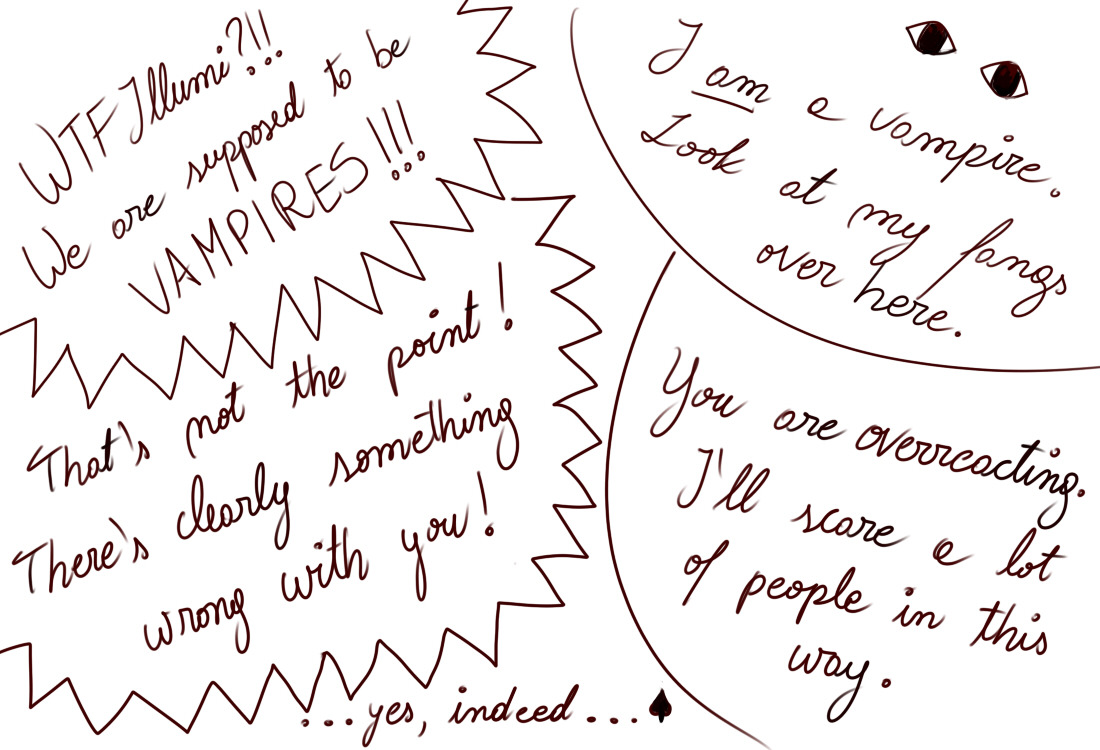 WTF Illumi?!!
We are supposed to be
VAMPIRES!!!
I am a vampire.
Look at my fangs
over here.
That's not the point!
There's clearly something
wrong with you!
You are overreacting.
I'll scare a lot
of people in this
way.
...yes, indeed...♠